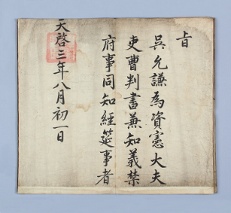 旨
吳允謙爲資憲大夫
吏曹判書兼知義禁
府事同知經筵事者
天啓三年八月初一日